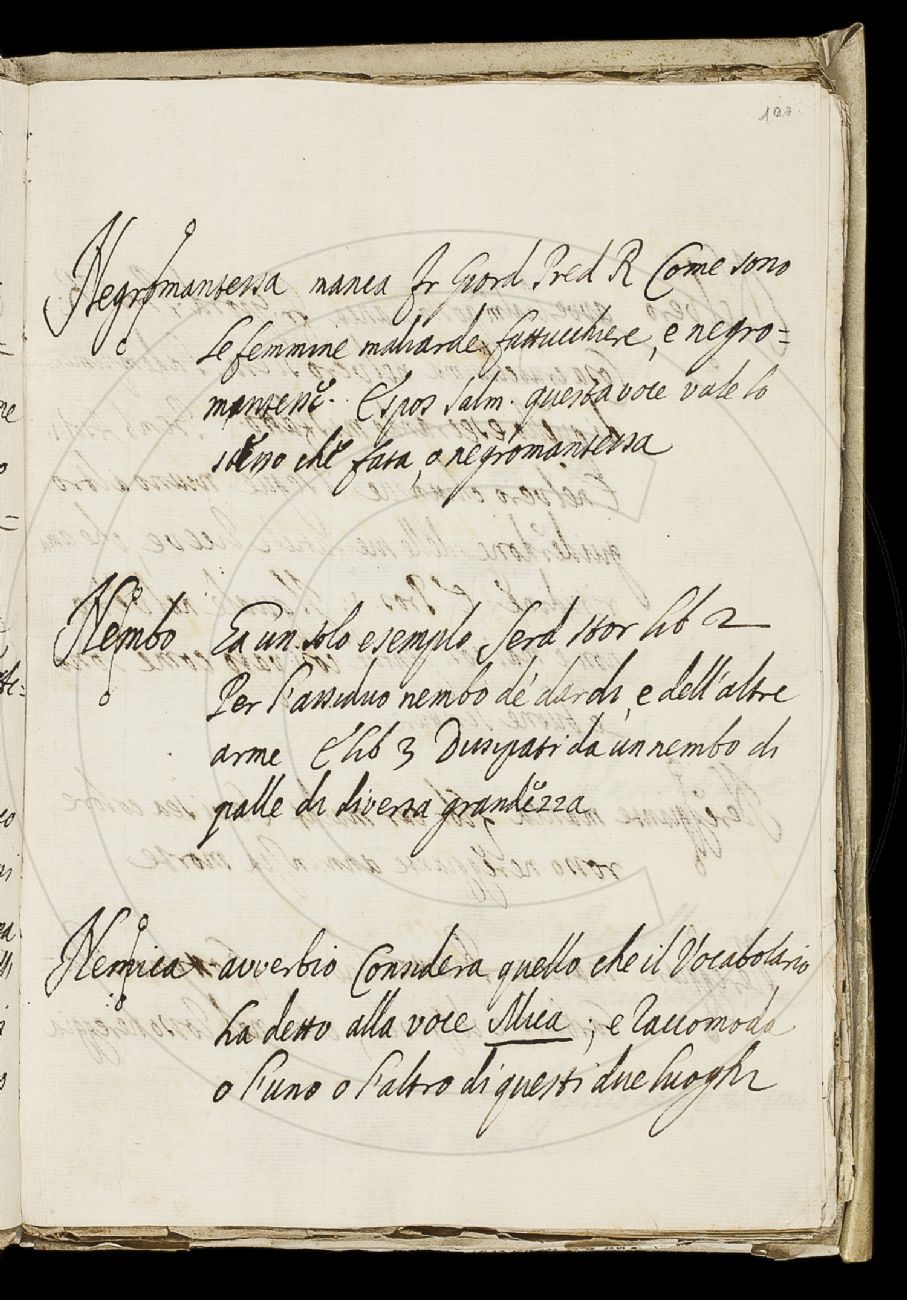 190
Negromantessa manca fr Giord Pred R Come sono
le femmine maliarde fattucchiere, e negro=
mantesse. Espos Salm. questa voce vale lo
stesso che fata, o negromantessa
Nembo Ea un solo esemplo Serd stor lib 2
Per l'assiduo nembo de' dardi, e dell'altre
arme E lib 3 Dissipati da un nembo di
palle di diversa grandezza
Nemica avverbio Considera quello che il Vocabolario
ha detto alla voce Mica ; e raccomoda
o l'uno o l'altro di questi due luoghi